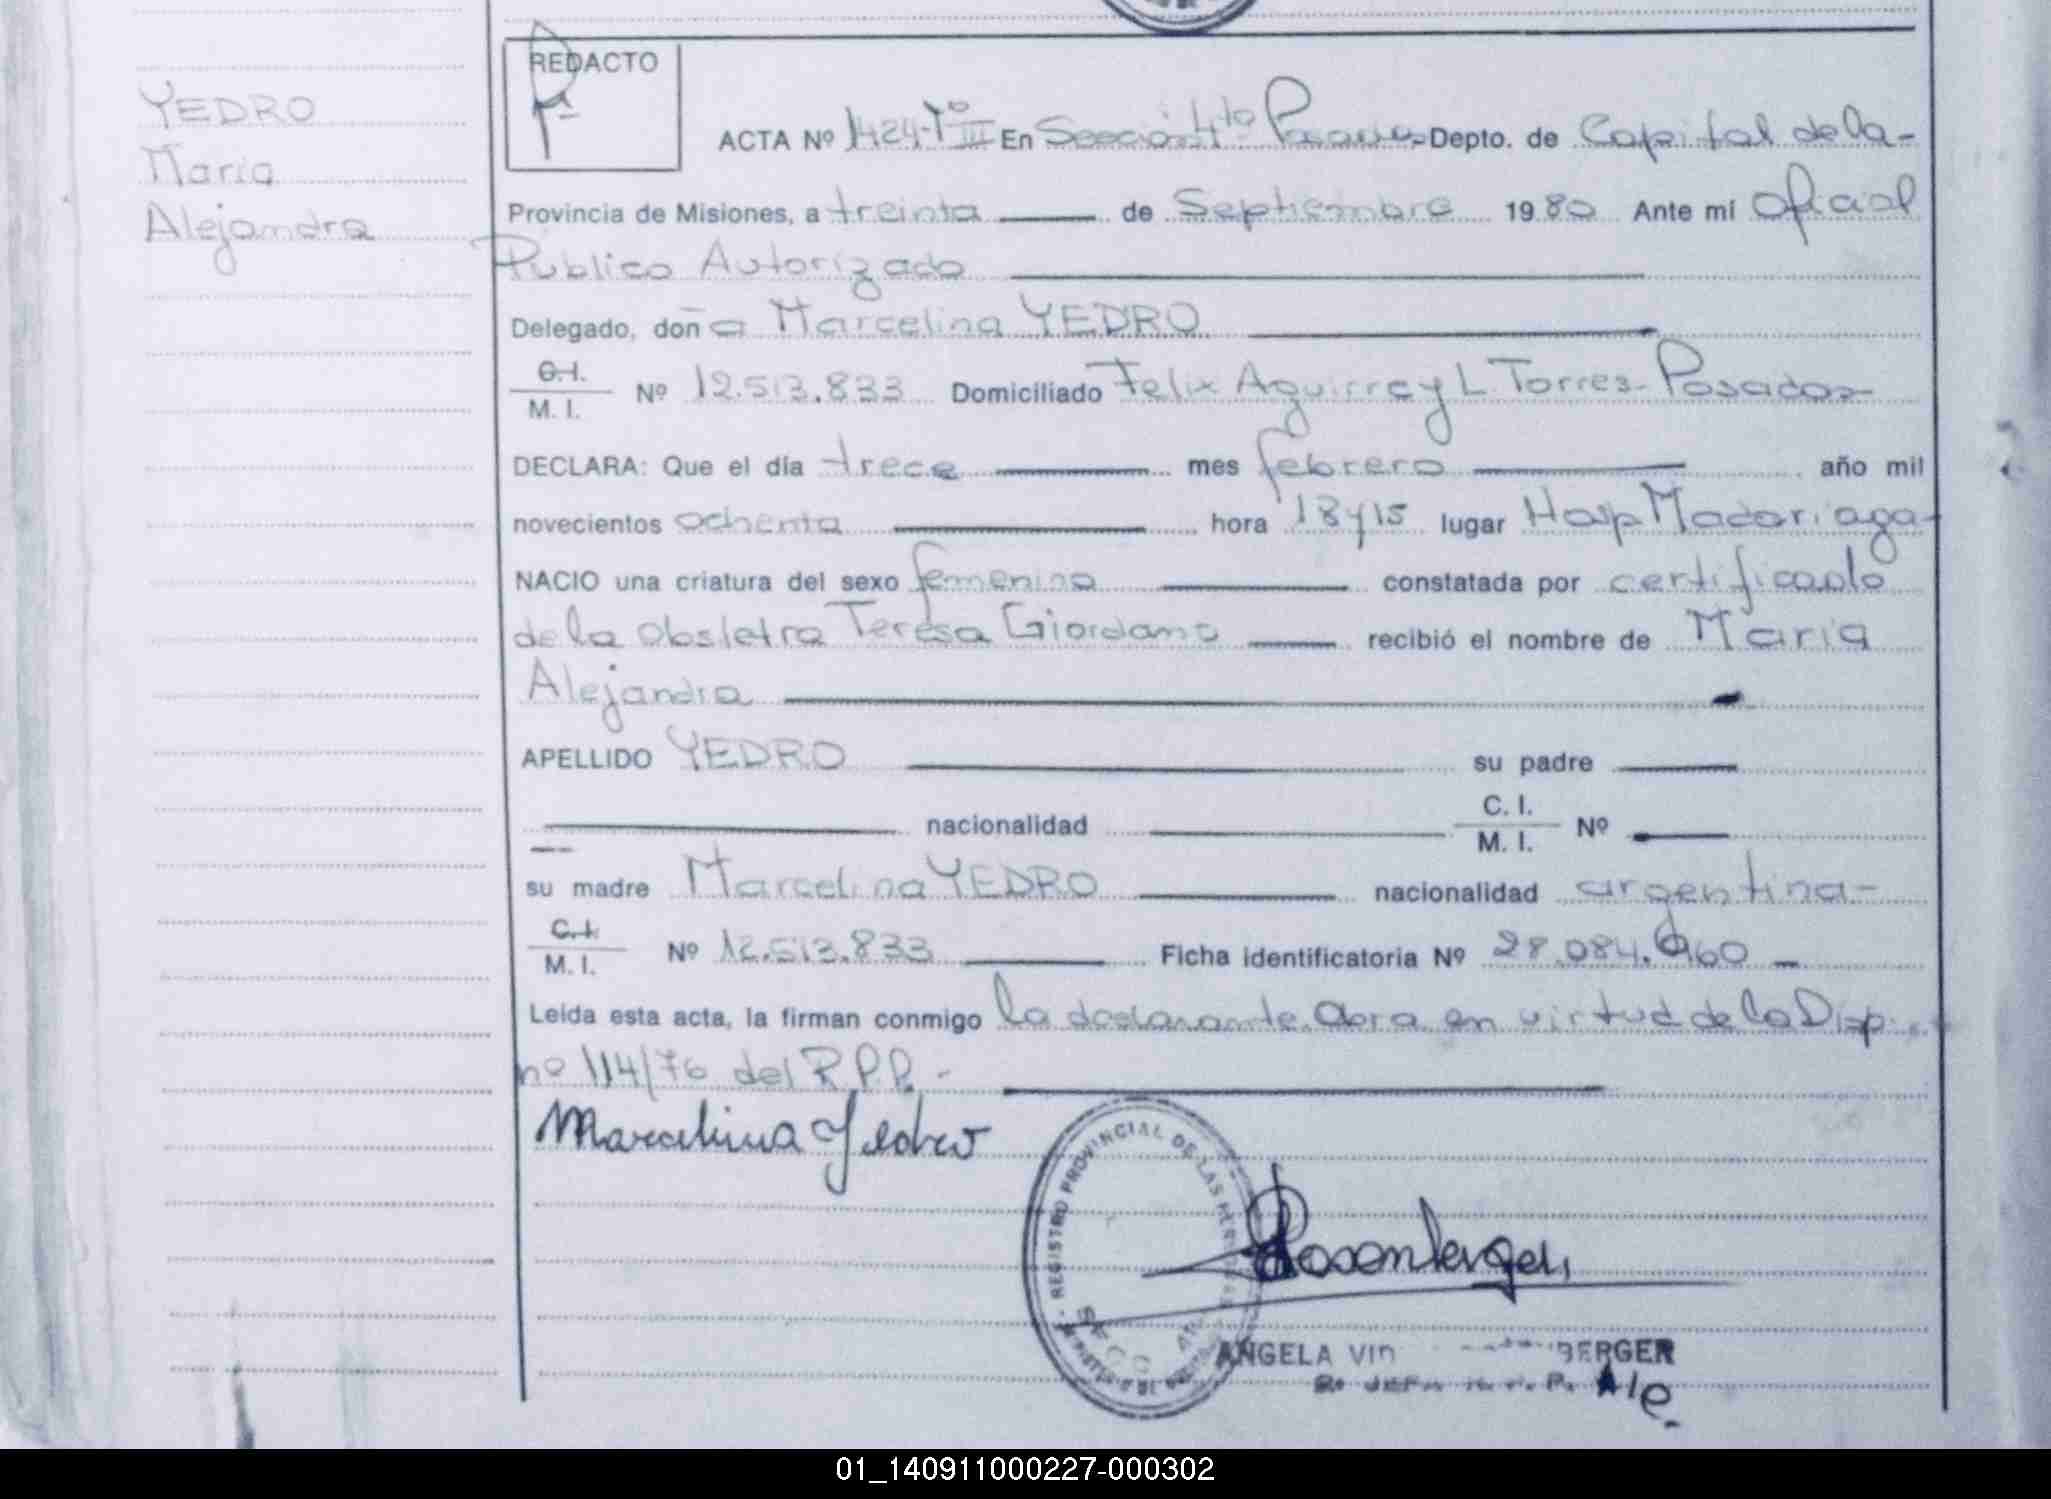 YEDRO
Maria
Alejandra
REDACTO
ACTA Nº 1424-Tº III En Sección 4to Posadas- Depto. de Capital de la-
Provincia de Misiones, a treinta de Septiembre 1980 Ante mí Oficial
Publico Autorizado
Delegado, don a Marcelina YEDRO
C.I. M. I. Nº 12.513.833 Domiciliado Felix Aguirre y L. Torres- Posadas-
DECLARA: Que el día trece mes febrero año mil
novecientos ochenta hora 18y15 lugar Hosp Madariaga-
NACIO una criatura del sexo femenino constatada por certificado
de la obstetra Teresa Giordano recibió el nombre de Maria
Alejandra
APELLIDO YEDRO su padre
nacionalidad C. I. M. I. Nº
su madre Marcelina YEDRO nacionalidad argentina-
C.I. M. I. Nº 12.513.833 Ficha identificatoria Nº 28.084.960
Leida esta acta, la firman conmigo la declarante. Obra en virtud de la Disp.
nº 114/76 del R.P.P.-
Marcelina Yedro
REGISTRO PROVINCIAL DE LAS
Rosenberger
ANGELA BERGER
01_140911000227-000302